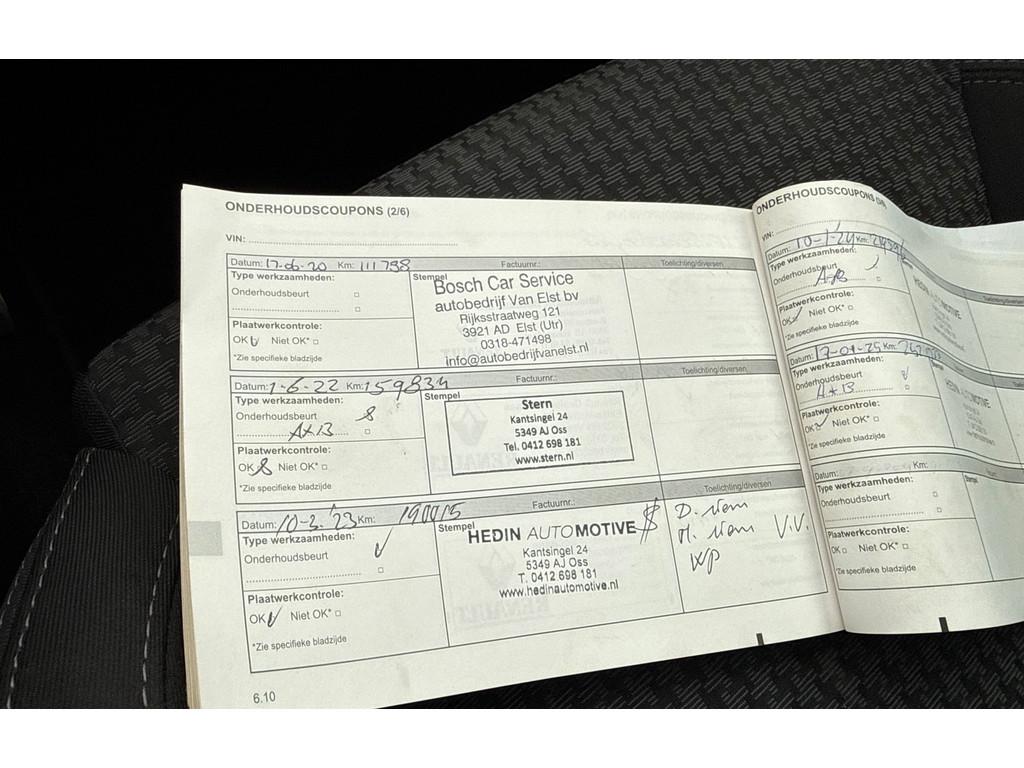 ONDERHOUDSCOUPONS (2/6)
VIN:
Datum: 17-06-20 Km: 111798 Factuurnr.: Toelichting/diversen
Type werkzaamheden: Stempel
Onderhoudsbeurt
Bosch Car Service
autobedrijf Van Elst bv
Rijksstraatweg 121
3921 AD Elst (Utr)
0318-471498
info@autobedrijfvanelst.nl
Plaatwerkcontrole:
OK Niet OK*
*Zie specifieke bladzijde
Datum: 1-6-22 Km: 159834 Factuurnr.: Toelichting/diversen
Type werkzaamheden: Stempel
Onderhoudsbeurt
A+B
Stern
Kantsingel 24
5349 AJ Oss
Tel. 0412 698 181
www.stern.nl
Plaatwerkcontrole:
OK Niet OK*
*Zie specifieke bladzijde
Datum: 10-3-'23 Km: 190015 Factuurnr.: Toelichting/diversen
Type werkzaamheden: Stempel
Onderhoudsbeurt
HEDIN AUTOMOTIVE
Kantsingel 24
5349 AJ Oss
T. 0412 698 181
www.hedinautomotive.nl
V.V.
WP
Plaatwerkcontrole:
OK Niet OK*
*Zie specifieke bladzijde
6.10
ONDERHOUDSCOUPONS
VIN:
Datum: 10-1-24 Km:
Type werkzaamheden:
Onderhoudsbeurt
A+B
HEDIN AUTOMOTIVE
Toelichting/diversen
Plaatwerkcontrole:
OK Niet OK*
*Zie specifieke bladzijde
Datum: Km:
Type werkzaamheden: Stempel
Onderhoudsbeurt
A+B
HEDIN AUTOMOTIVE
Plaatwerkcontrole:
OK Niet OK*
*Zie specifieke bladzijde
Datum: Km:
Type werkzaamheden: Stempel
Onderhoudsbeurt
Plaatwerkcontrole:
OK Niet OK*
*Zie specifieke bladzijde